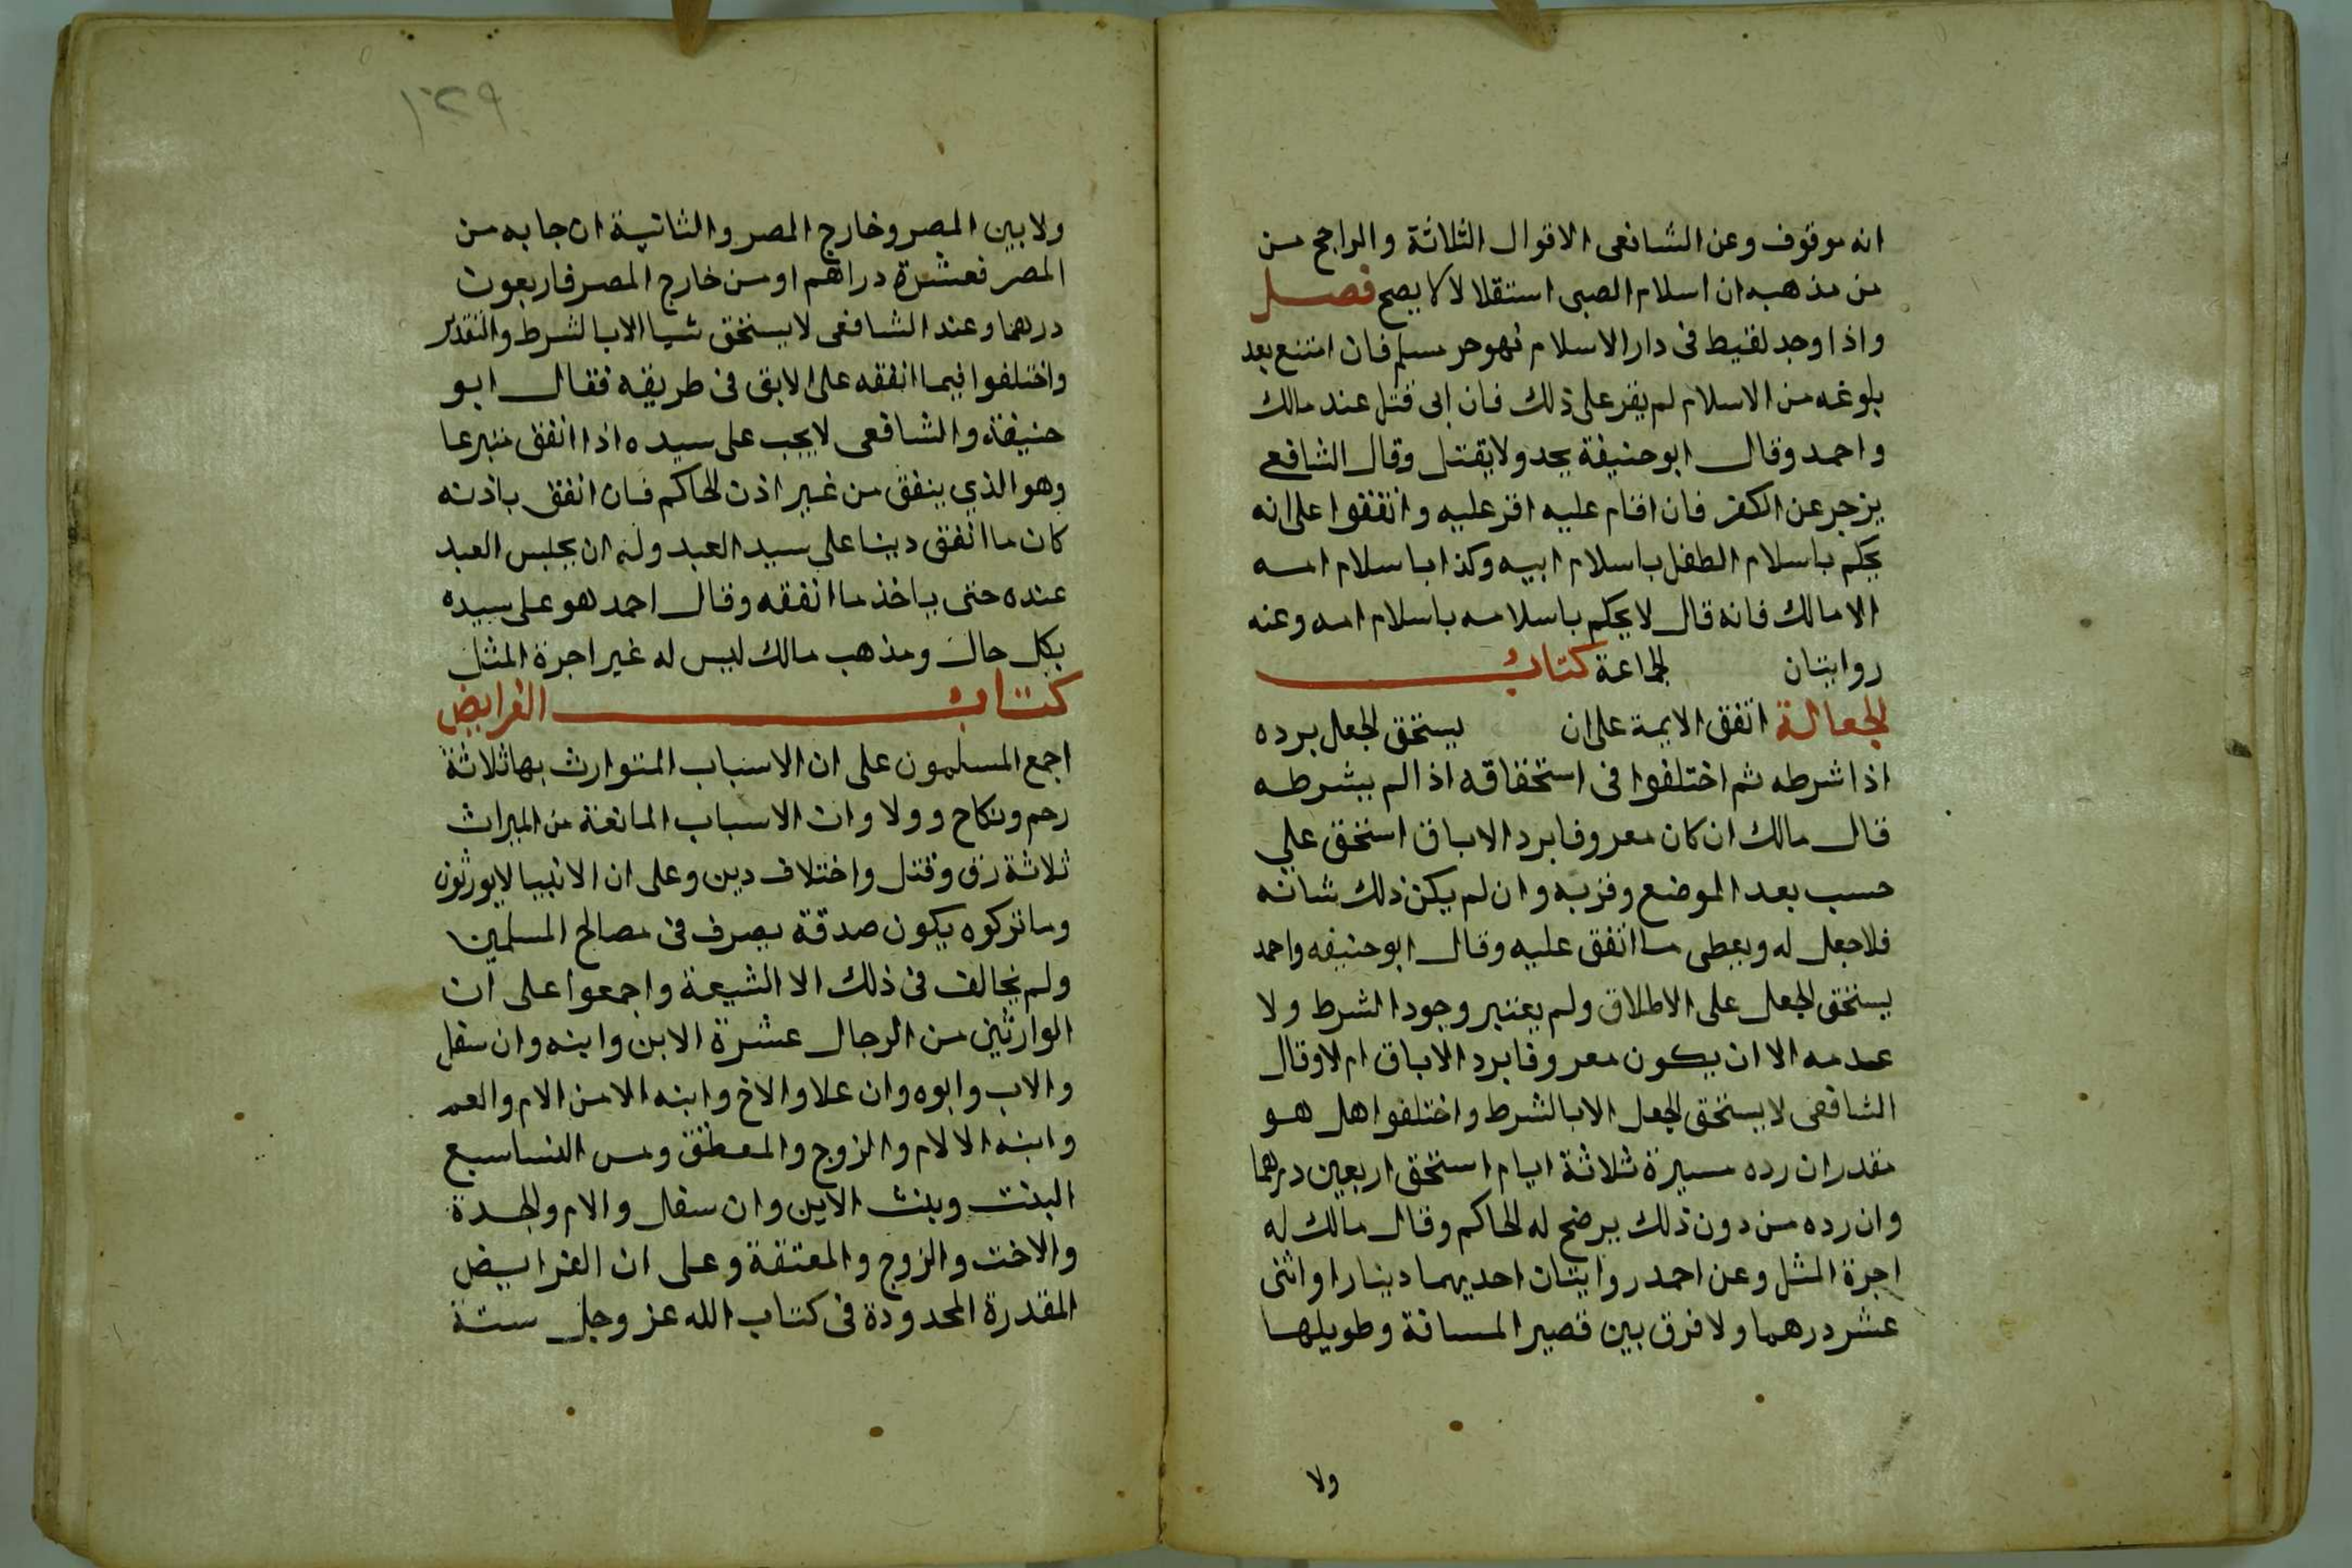 انه موقوف وعن الشافعى الاقوال الثلاثة والراجح من
من مذهبه ان اسلام الصبى استقلالا لا يصح فصل
واذا وجد لقيط فى دار الاسلام فهو حر مسلم فان امتنع بعد
بلوغه من الاسلام لم يقر على ذلك فان ابى قتل عند مالك
واحمد وقال ابو حنيفة يحد ولا يقتل وقال الشافعي
يزجر عن الكفر فان اقام عليه اقر عليه واتفقوا على انه
يحكم باسلام الطفل باسلام ابيه وكذا باسلام امه
الا مالك فانه قال لا يحكم باسلامه باسلام امه وعنه
روايتان لجماعة كتاب
الجعالة اتفق الايمة على ان يستحق الجعل برده
اذا شرطه ثم اختلفوا فى استحقاقه اذا لم يشرطه
قال مالك ان كان معروفا برد الاباق استحق علي
حسب بعد الموضع وقربه وان لم يكن ذلك شانه
فلا جعل له ويعطى ما انفق عليه وقال ابو حنيفه واحمد
يستحق الجعل على الاطلاق ولم يعتبر وجود الشرط ولا
عدمه الا ان يكون معروفا برد الاباق ام لا وقال
الشافعى لا يستحق الجعل الا بالشرط واختلفوا هل هو
مقدر ان رده مسيرة ثلاثة ايام استحق اربعين درهما
وان رده من دون ذلك يرضح له الحاكم وقال مالك له
اجرة المثل وعن احمد روايتان احديهما دينارا او اثنى
عشر درهما ولا فرق بين قصير المسافة وطويلها
ولا
١٢٩
ولا بين المصر وخارج المصر والثانية ان جا به من
المصر فعشرة دراهم او من خارج المصر فاربعون
درهما وعند الشافعى لا يستحق شيا الا بالشرط والتقدير
واختلفوا فيما انفقه على الابق فى طريقه فقال ابو
حنيفة والشافعى لا يجب على سيده اذا انفق متبرعا
وهو الذي ينفق من غير اذن الحاكم فان انفق باذنه
كان ما انفق دينا على سيد العبد وله ان يحبس العبد
عنده حتى ياخذ ما انفقه وقال احمد هو على سيده
بكل حال ومذهب مالك ليس له غير اجرة المثل
كتاب الفرايض
اجمع المسلمون على ان الاسباب المتوارث بها ثلاثة
رحم ونكاح وولا وان الاسباب المانعة من الميراث
ثلاثة رق وقتل واختلاف دين وعلى ان الانبيا لا يورثون
وما تركوه يكون صدقة يصرف فى مصالح المسلمين
ولم يخالف فى ذلك الا الشيعة واجمعوا على ان
الوارثين من الرجال عشرة الابن وابنه وان سفل
والاب وابوه وان علا والاخ وابنه الا من الام والعم
وابنه الا لام والزوج والمعطق ومن النسا سبع
البنت وبنت الابن وان سفل والام والجدة
والاخت والزوج والمعتقة وعلى ان الفرايض
المقدرة المحدودة فى كتاب الله عز وجل ستة